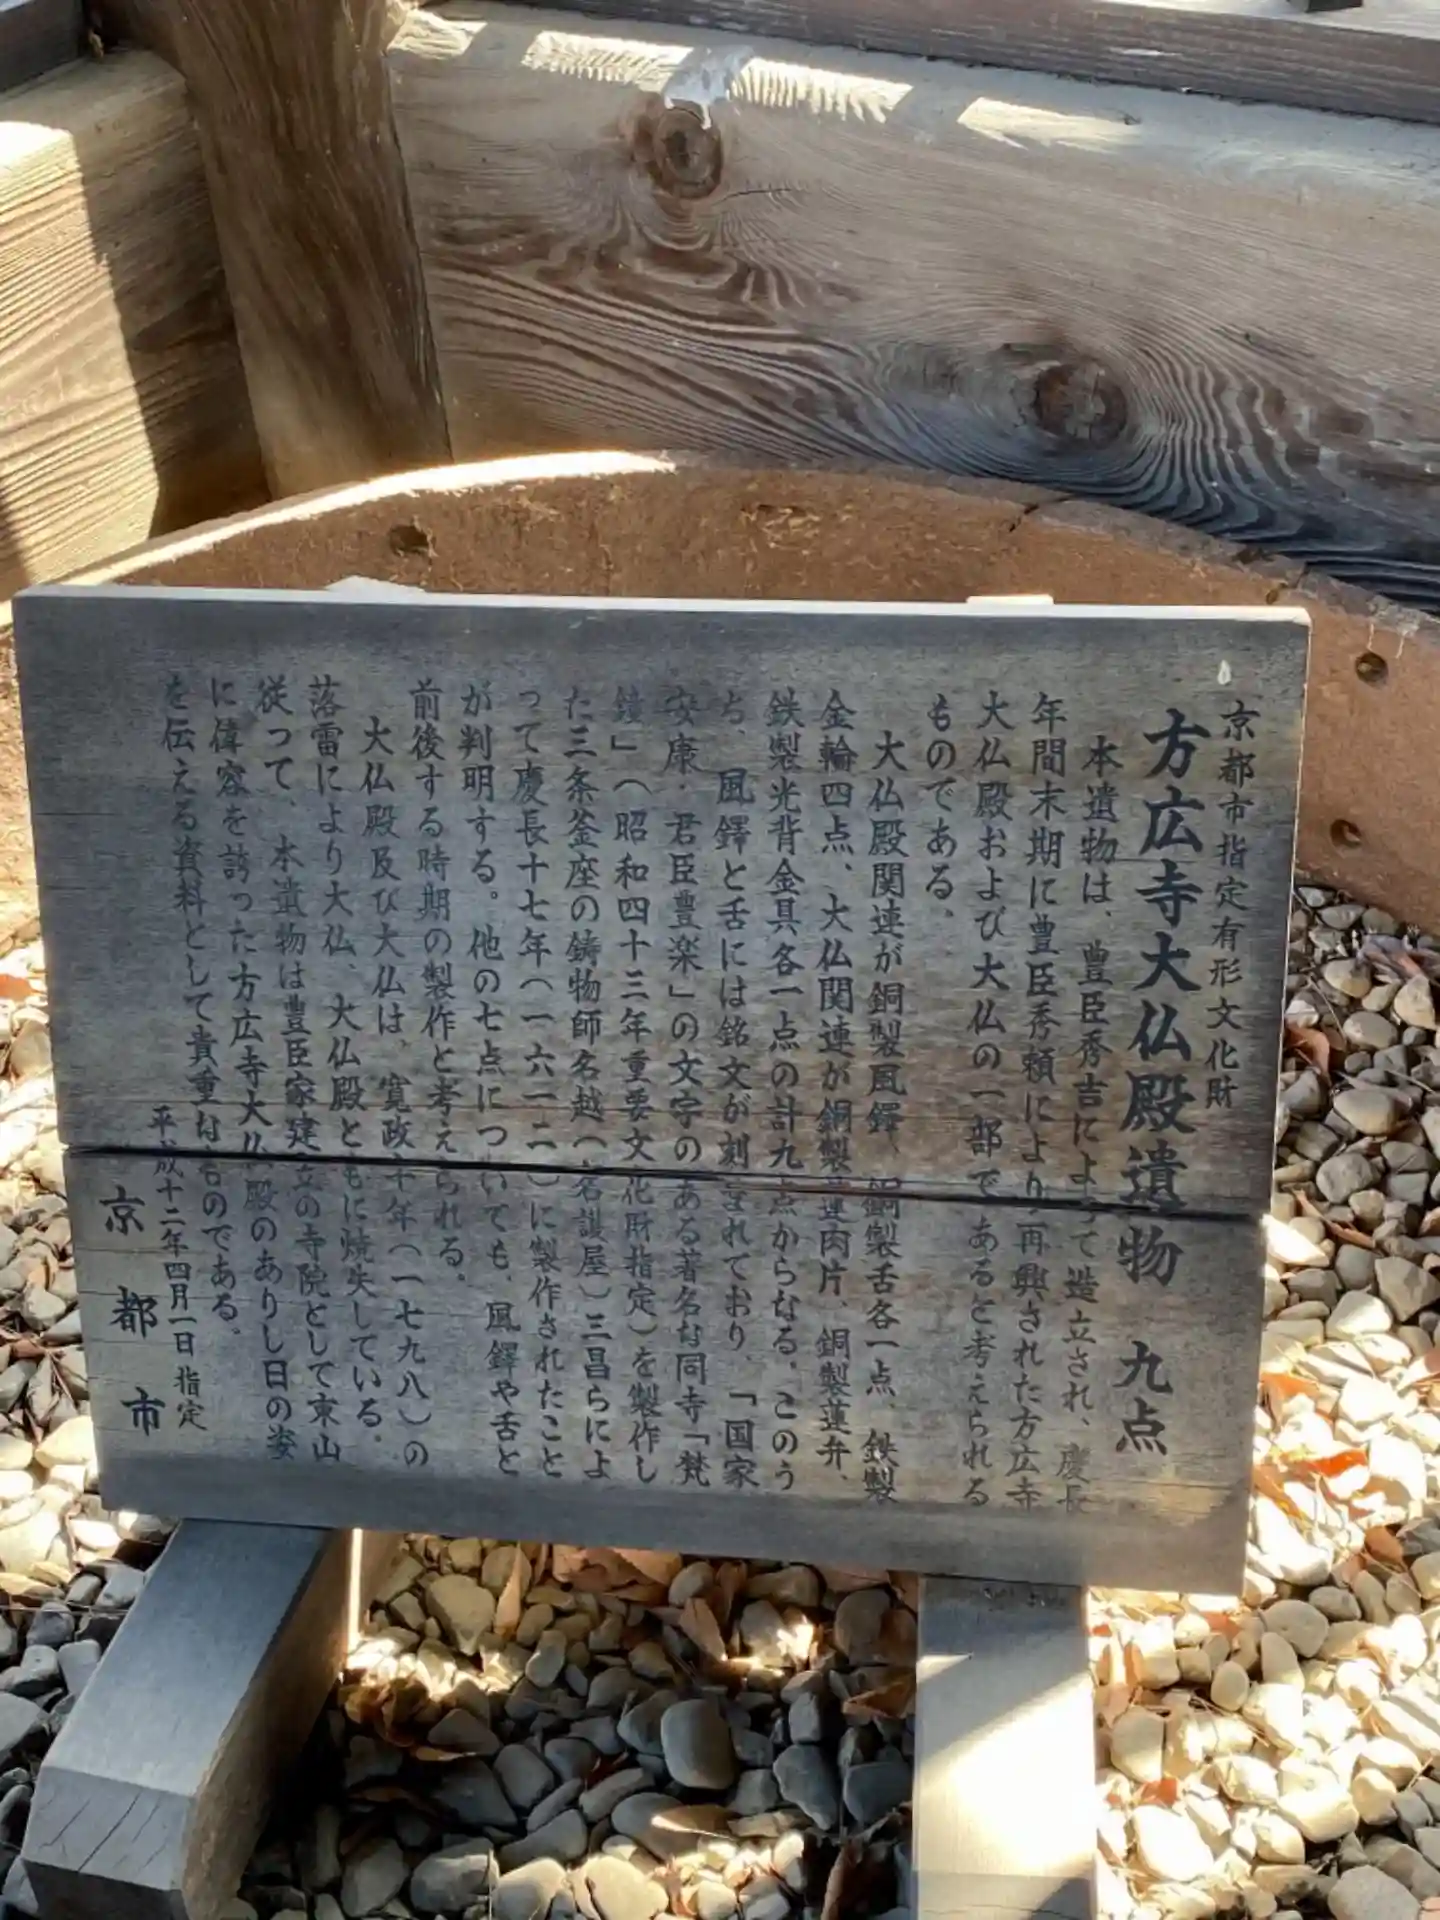 京都市指定有形文化財
方広寺大仏殿遺物　九点
本遺物は、豊臣秀吉によって造立され、慶長
年間末期に豊臣秀頼により再興された方広寺
大仏殿および大仏の一部であると考えられる
ものである。
大仏殿関連が銅製風鐸、銅製舌各一点、鉄製
金輪四点、大仏関連が銅製蓮肉片、銅製蓮弁、
鉄製光背金具各一点の計九点からなる。このう
ち、風鐸と舌には銘文が刻まれており、「国家
安康・君臣豊楽」の文字のある著名な同寺「梵
鐘」（昭和四十三年重要文化財指定）を製作し
た三条釜座の鋳物師名越（名護屋）三昌らによ
って慶長十七年（一六一二）に製作されたこと
が判明する。他の七点についても、風鐸や舌と
前後する時期の製作と考えられる。
大仏殿及び大仏は、寛政十年（一七九八）の
落雷により大仏、大仏殿ともに焼失している。
従って、本遺物は豊臣家建立の寺院として東山
に偉容を誇った方広寺大仏殿のありし日の姿
を伝える資料として貴重なものである。
平成十二年四月一日指定
京都市